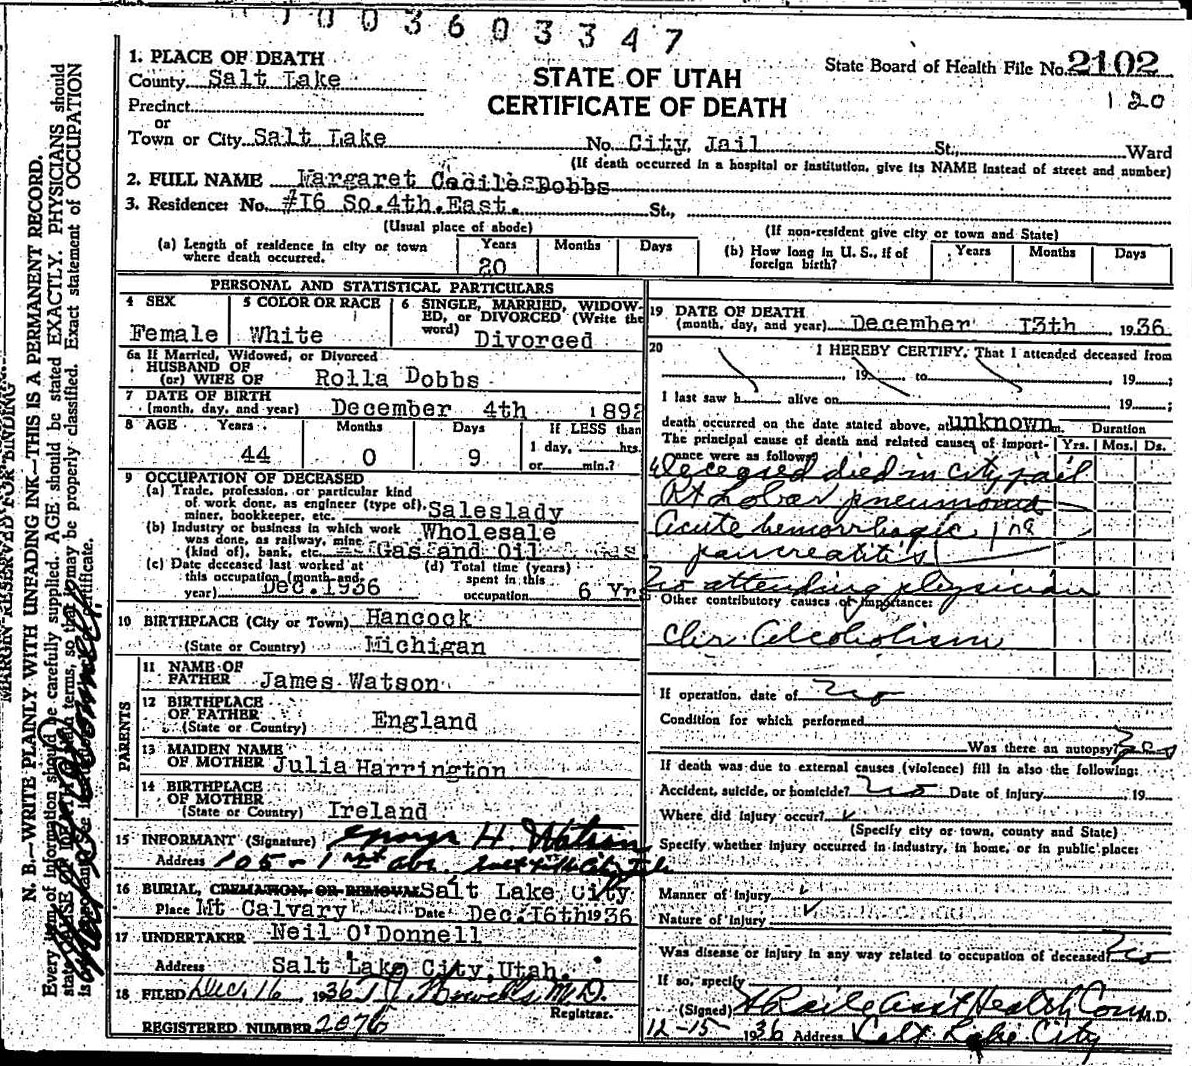 1003603347
1. PLACE OF DEATH
County Salt Lake
Precinct
or
Town or City Salt Lake No. City Jail St., Ward
(If death occurred in a hospital or institution, give its NAME instead of street and number)
STATE OF UTAH
CERTIFICATE OF DEATH
State Board of Health File No. 2102
120
2. FULL NAME Margaret Cecile Dobbs
3. Residence: No. #16 So. 4th. East. St.,
(Usual place of abode) (If non-resident give city or town and State)
(a) Length of residence in city or town where death occurred. Years 20 Months Days
(b) How long in U. S., if of foreign birth? Years Months Days
PERSONAL AND STATISTICAL PARTICULARS
4 SEX Female
5 COLOR OR RACE White
6 SINGLE, MARRIED, WIDOWED, or DIVORCED (Write the word) Divorced
6a If Married, Widowed, or Divorced
HUSBAND OF
(or) WIFE OF Rolla Dobbs
7 DATE OF BIRTH
(month, day, and year) December 4th 1892
8 AGE Years 44 Months 0 Days 9 If LESS than 1 day, hrs. or min.?
9 OCCUPATION OF DECEASED
(a) Trade, profession, or particular kind of work done, as engineer (type of), miner, bookkeeper, etc. Saleslady
(b) Industry or business in which work was done, as railway, mine (kind of), bank, etc. Wholesale Gas and Oil
(c) Date deceased last worked at this occupation (month and year) Dec. 1936
(d) Total time (years) spent in this occupation 6 Yrs
10 BIRTHPLACE (City or Town) Hancock
(State or Country) Michigan
PARENTS
11 NAME OF FATHER James Watson
12 BIRTHPLACE OF FATHER (State or Country) England
13 MAIDEN NAME OF MOTHER Julia Harrington
14 BIRTHPLACE OF MOTHER (State or Country) Ireland
15 INFORMANT (Signature) George H. Watson
Address 105 - 1st ave. Salt Lake City
16 BURIAL, CREMATION, OR REMOVAL Salt Lake City
Place Mt Calvary Date Dec. 16th 1936
17 UNDERTAKER Neil O'Donnell
Address Salt Lake City, Utah.
18 FILED Dec. 16, 1936 M.D.
Registrar.
REGISTERED NUMBER 2076
19 DATE OF DEATH
(month, day, and year) December 13th, 1936
20 I HEREBY CERTIFY, That I attended deceased from
, 19 to , 19 ;
I last saw h alive on , 19 ;
death occurred on the date stated above, at unknown m.
The principal cause of death and related causes of importance were as follows: Duration Yrs. Mos. Ds.
Deceased died in city jail
Rt Lobar pneumonia
Acute hemorrhagic
pancreatitis
No attending physician
Other contributory causes of importance:
Chr. Alcoholism
If operation, date of No
Condition for which performed
Was there an autopsy? Yes
If death was due to external causes (violence) fill in also the following:
Accident, suicide, or homicide? No Date of injury , 19
Where did injury occur?
(Specify city or town, county and State)
Specify whether injury occurred in industry, in home, or in public place:
Manner of injury
Nature of injury
Was disease or injury in any way related to occupation of deceased? No
If so, specify
(Signed) Asst Health Com M.D.
12-15 1936 Address Salt Lake City
MARGIN RESERVED FOR BINDING
N. B.—WRITE PLAINLY WITH UNFADING INK—THIS IS A PERMANENT RECORD.
Every item of information should be carefully supplied. AGE should be stated EXACTLY. PHYSICIANS should
state CAUSE OF DEATH in plain terms, so that it may be properly classified. Exact statement of OCCUPATION
certificate.